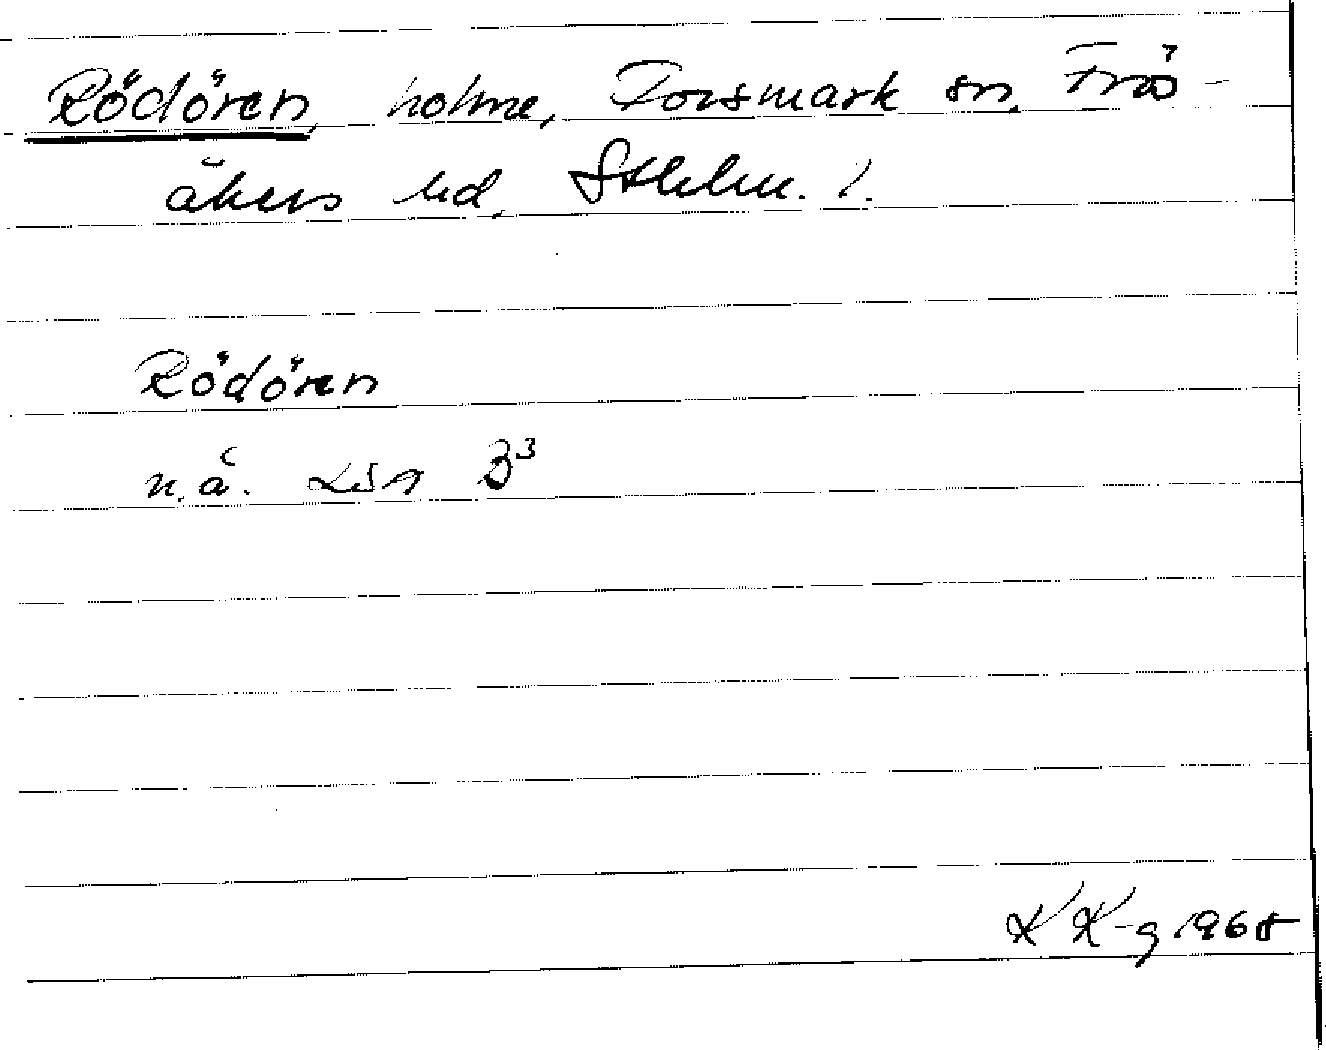 Rödören, holme, Forsmark sn, Frös-
åkers hd, Sthlm. l.
Rödören
n.å. LSA B³
K K-g 1968